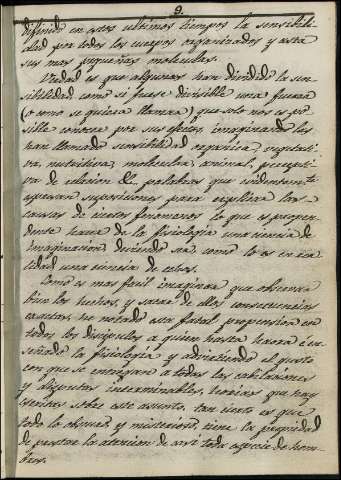 9.
difinido en estos ultimos tiempos la sensibili-
dad por todos los cuerpos organizados y asta
sus mas pequeñas moleculas.
Verdad es que algunos han dividido la sen-
sibilidad como si fuese divisible una fuerza
(o como se quiera llamar) que solo nos es po-
sible conocer por sus efectos, imaginando las
han llamado sensibilidad organica, vegetati-
va, nutritiva, molecular, animal, percepti-
va de relacion &c. palabras que evidentemte
apenan suposiciones para explicar las
causas de ciertos fenomenos lo que es propen-
dente hacer de la fisiologia una ciencia de
imaginacion debiendo ser como lo es en rea-
lidad una ciencia de echos.
Como es mas facil imaginar que observar
bien los hechos, y sacar de ellos consecuencias
exactas, he notado esta fatal propension en
todos los disipulos a quien hasta ahora é en-
señado la fisiologia y advirtiendo el gusto
con que se entregan a todas las cabilaciones
y disputas interminables, teorias que hay
escritas sobre este asunto, tan cierto es que
todo lo obscuro y misterioso, tiene la propiedad
de prestar la atencion de assi toda especie de hom-
bres.